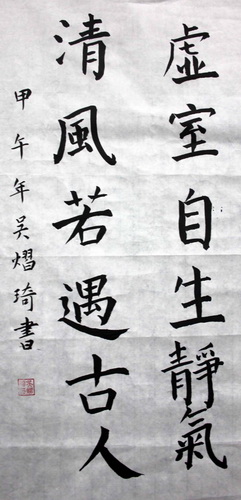 虛室自生靜氣
清風若遇古人
甲午年吴熠琦書